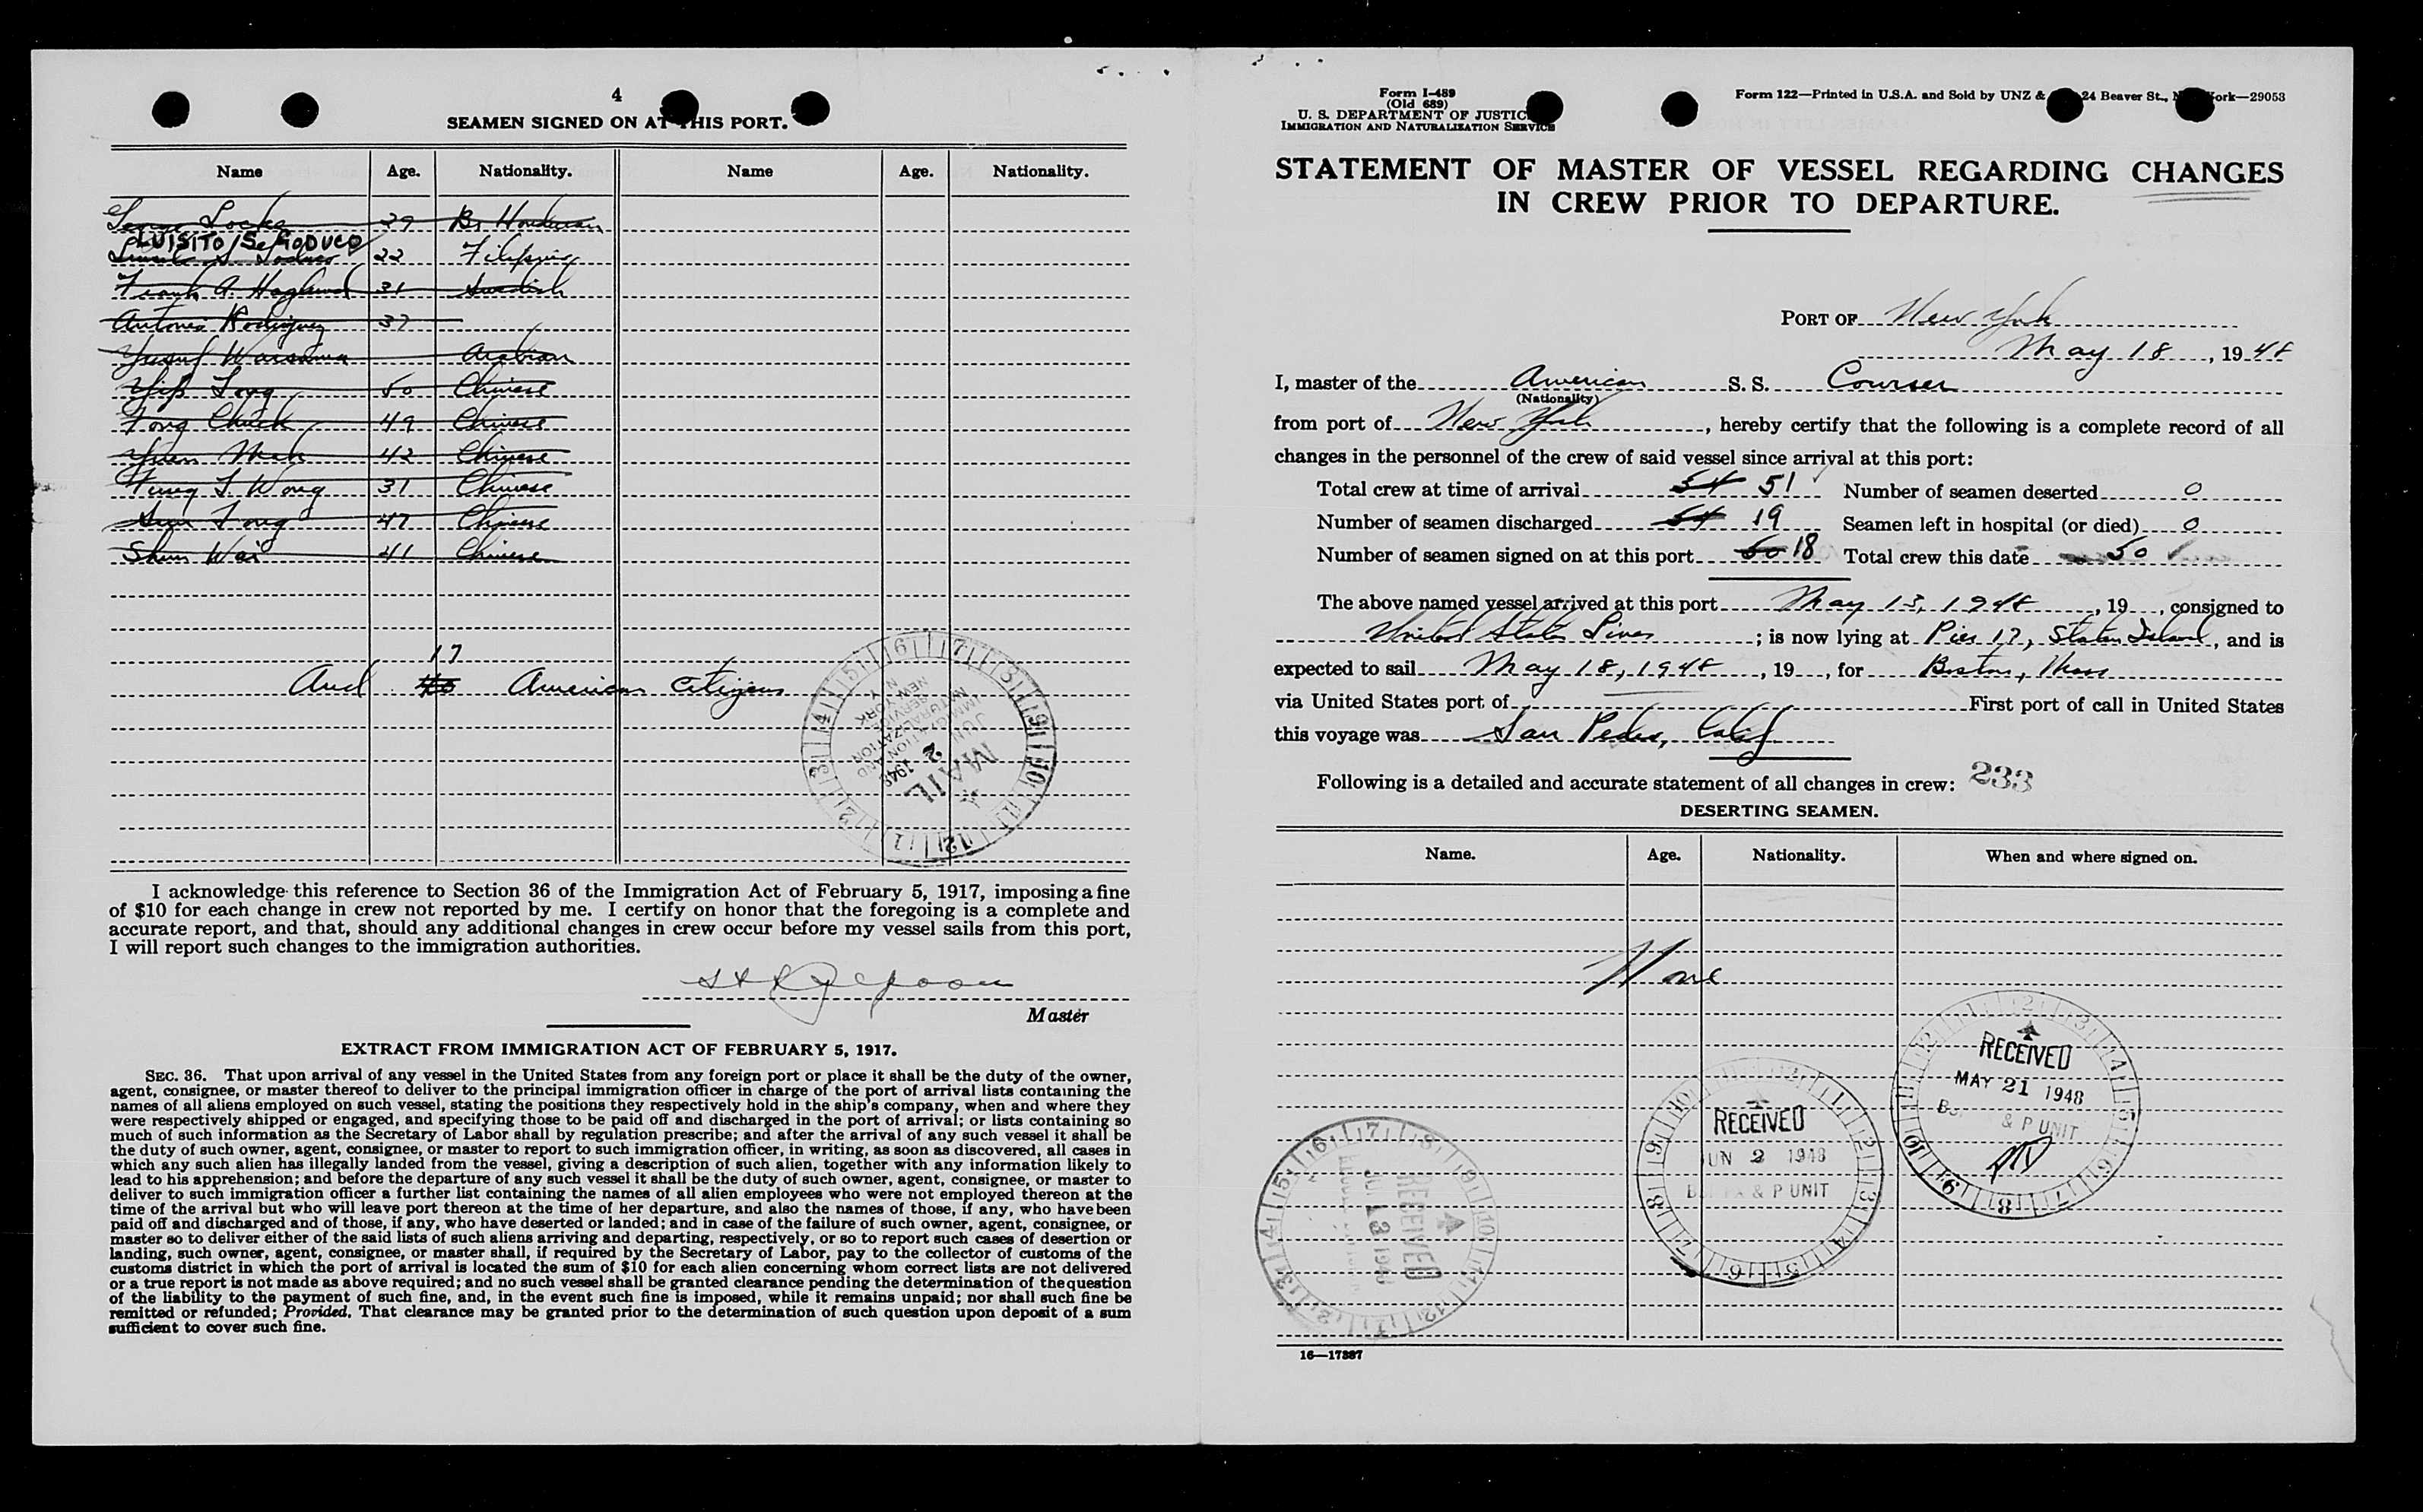 4
SEAMEN SIGNED ON AT THIS PORT.
Name Age. Nationality. Name Age. Nationality.
George Locke 29 Br Honduran
LUISITO
22 Filipino
Frank A. Haglund 31 Swedish
Antonio Rodriguez 37
Yusuf Warsama Arabian
Yip Fong 50 Chinese
Fong Chuck 49 Chinese
Yuen Mah 42 Chinese
Fung S. Wong 31 Chinese
Sun Fong 47 Chinese
Shun Wai 41 Chinese
17
And 40 American citizens
IMMIGRATION AND NATURALIZATION SERVICE NEW YORK N Y
MAIL
JUN 2 1948
I acknowledge this reference to Section 36 of the Immigration Act of February 5, 1917, imposing a fine
of $10 for each change in crew not reported by me. I certify on honor that the foregoing is a complete and
accurate report, and that, should any additional changes in crew occur before my vessel sails from this port,
I will report such changes to the immigration authorities.
Master
EXTRACT FROM IMMIGRATION ACT OF FEBRUARY 5, 1917.
SEC. 36. That upon arrival of any vessel in the United States from any foreign port or place it shall be the duty of the owner,
agent, consignee, or master thereof to deliver to the principal immigration officer in charge of the port of arrival lists containing the
names of all aliens employed on such vessel, stating the positions they respectively hold in the ship's company, when and where they
were respectively shipped or engaged, and specifying those to be paid off and discharged in the port of arrival; or lists containing so
much of such information as the Secretary of Labor shall by regulation prescribe; and after the arrival of any such vessel it shall be
the duty of such owner, agent, consignee, or master to report to such immigration officer, in writing, as soon as discovered, all cases in
which any such alien has illegally landed from the vessel, giving a description of such alien, together with any information likely to
lead to his apprehension; and before the departure of any such vessel it shall be the duty of such owner, agent, consignee, or master to
deliver to such immigration officer a further list containing the names of all alien employees who were not employed thereon at the
time of the arrival but who will leave port thereon at the time of her departure, and also the names of those, if any, who have been
paid off and discharged and of those, if any, who have deserted or landed; and in case of the failure of such owner, agent, consignee, or
master so to deliver either of the said lists of such aliens arriving and departing, respectively, or so to report such cases of desertion or
landing, such owner, agent, consignee, or master shall, if required by the Secretary of Labor, pay to the collector of customs of the
customs district in which the port of arrival is located the sum of $10 for each alien concerning whom correct lists are not delivered
or a true report is not made as above required; and no such vessel shall be granted clearance pending the determination of the question
of the liability to the payment of such fine, and, in the event such fine is imposed, while it remains unpaid; nor shall such fine be
remitted or refunded; Provided, That clearance may be granted prior to the determination of such question upon deposit of a sum
sufficient to cover such fine.
Form I-489
(Old 689)
U. S. DEPARTMENT OF JUSTICE
IMMIGRATION AND NATURALIZATION SERVICE
Form 122—Printed in U.S.A. and Sold by UNZ & 24 Beaver St., ork—29053
STATEMENT OF MASTER OF VESSEL REGARDING CHANGES
IN CREW PRIOR TO DEPARTURE.
PORT OF New York
May 18, 1948
I, master of the American S. S. Courser
(Nationality)
from port of New York, hereby certify that the following is a complete record of all
changes in the personnel of the crew of said vessel since arrival at this port:
Total crew at time of arrival 54 51 Number of seamen deserted 0
Number of seamen discharged 54 19 Seamen left in hospital (or died) 0
Number of seamen signed on at this port 50 18 Total crew this date 50
The above named vessel arrived at this port May 13, 1948, 19, consigned to
United States Lines; is now lying at Pier 17, Staten Island, and is
expected to sail May 18, 1948, 19, for Boston, Mass
via United States port of First port of call in United States
this voyage was San Pedro, Calif
Following is a detailed and accurate statement of all changes in crew: 233
DESERTING SEAMEN.
Name. Age. Nationality. When and where signed on.
None
RECEIVED
MAY 21 1948
& P UNIT
RECEIVED
JUN 2 1948
& P UNIT
RECEIVED
16—17387